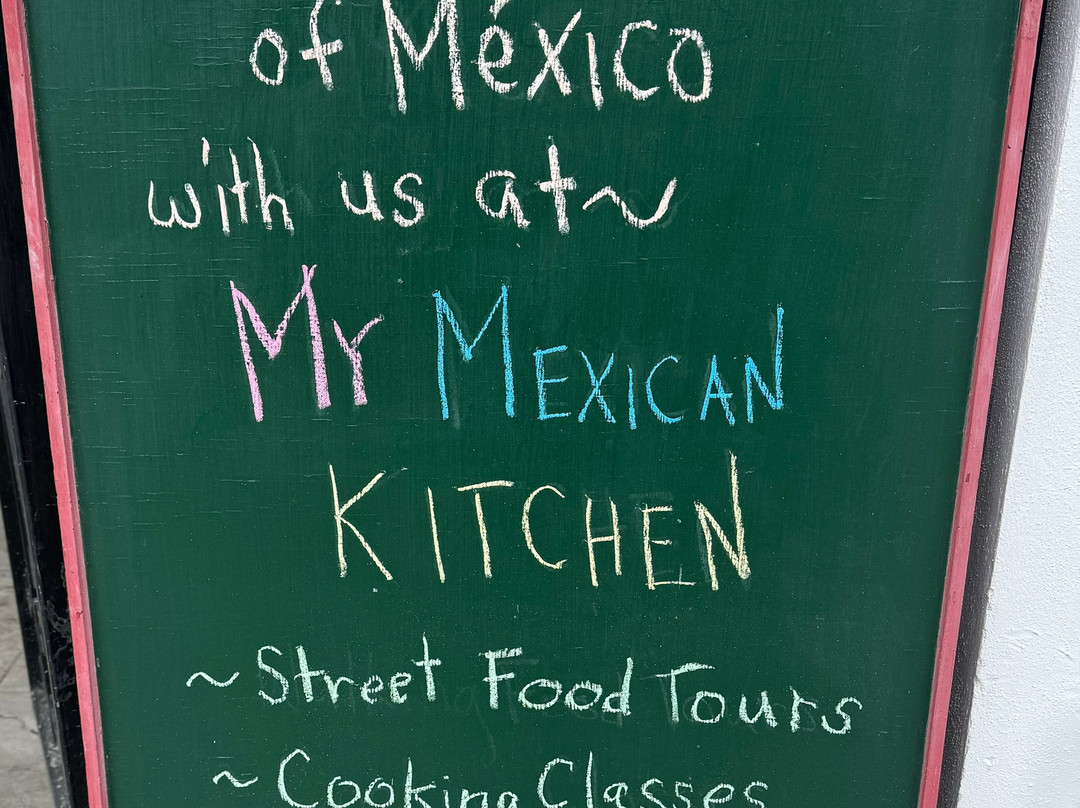 of México
with us at~
MY MEXICAN
KITCHEN
~ Street Food Tours
~ Cooking Classes